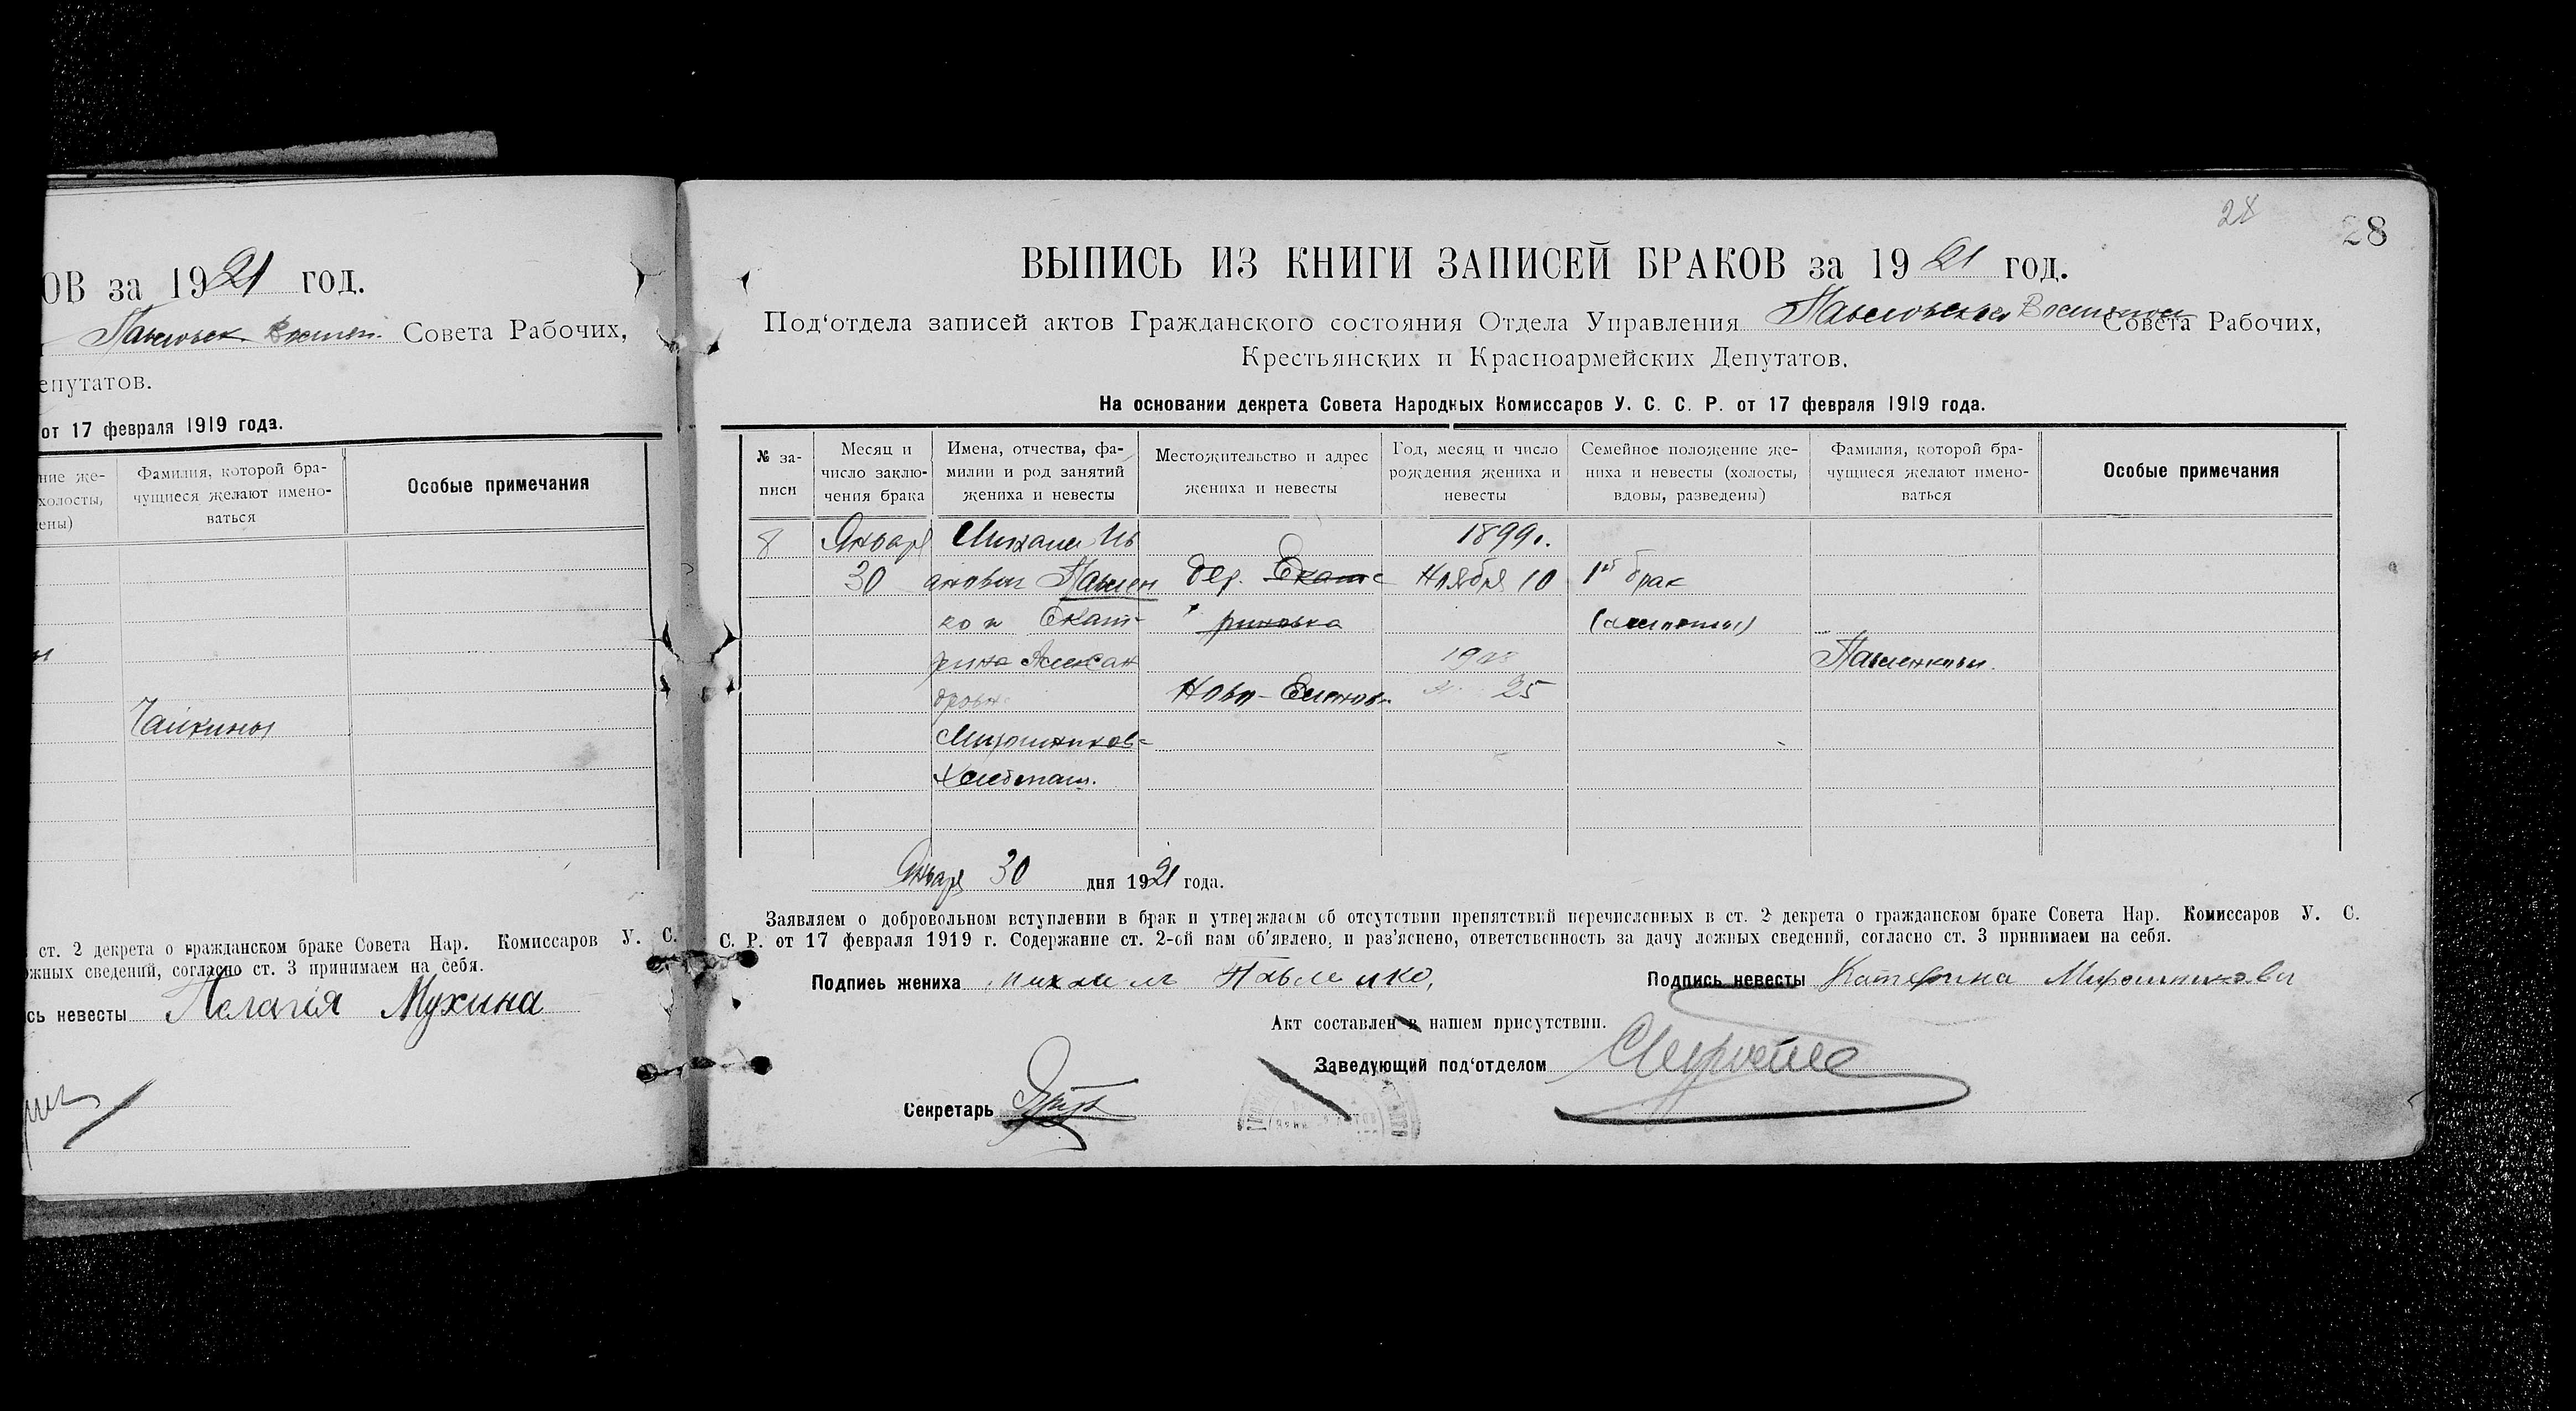 ОВ за 1921 год.
Совета Рабочих,
епутатов.
от 17 февраля 1919 года.
ние же-
холосты,
ены)
Фамилия, которой бра-
чущиеся желают имено-
ваться
Особые примечания
Чайкины
ст. 2 декрета о гражданском браке Совета Нар. Комиссаров У. С.
ожных сведений, согласно ст. 3 принимаем на себя.
сь невесты Пелагія Мухина
28
28
ВЫПИСЬ ИЗ КНИГИ ЗАПИСЕЙ БРАКОВ за 1921 год.
Под‘отдела записей актов Гражданского состояния Отдела Управления Павловского Совета Рабочих,
Крестьянских и Красноармейских Депутатов.
На основании декрета Совета Народных Комиссаров У. С. С. Р. от 17 февраля 1919 года.
№ за-
писи
Месяц и
число заклю-
чения брака
Имена, отчества, фа-
милии и род занятий
жениха и невесты
Местожительство и адрес
жениха и невесты
Год, месяц и число
рождения жениха и
невесты
Семейное положение же-
ниха и невесты (холосты,
вдовы, разведены)
Фамилия, которой бра-
чущиеся желают имено-
ваться
Особые примечания
8 Январь Михаил Ив 1899г.
30 анович Павлен дер. Екате Ноября 10 1й брак
ко и Екате- риновка
рина Алексан Павленковы
дровн Ново- 25
Мирошников-
Хлебопаш.
Январь 30 дня 1921 года.
Заявляем о добровольном вступлении в брак и утверждаем об отсутствии препятствий перечисленных в ст. 2 декрета о гражданском браке Совета Нар. Комиссаров У. С.
С. Р. от 17 февраля 1919 г. Содержание ст. 2-ой нам об‘явлено, и раз‘яснено, ответственность за дачу ложных сведений, согласно ст. 3 принимаем на себя.
Подпись жениха Михаил Павленко, Подпись невесты Катерина Мирошникова
Акт составлен в нашем присутствии.
Заведующий под‘отделом
Секретарь